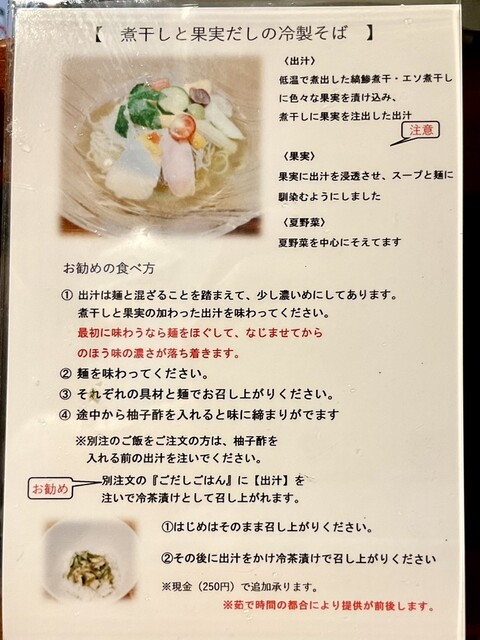 【 煮干しと果実だしの冷製そば 】
〈出汁〉
低温で煮出した縞鯵煮干・エソ煮干し
に色々な果実を漬け込み、
煮干しに果実を注出した出汁
注意
〈果実〉
果実に出汁を浸透させ、スープと麺に
馴染むようにしました
〈夏野菜〉
夏野菜を中心にそえてます
お勧めの食べ方
① 出汁は麺と混ざることを踏まえて、少し濃いめにしてあります。
煮干しと果実の加わった出汁を味わってください。
最初に味わうなら麺をほぐして、なじませてから
のほう味の濃さが落ち着きます。
② 麺を味わってください。
③ それぞれの具材と麺でお召し上がりください。
④ 途中から柚子酢を入れると味に締まりがでます
※別注のご飯をご注文の方は、柚子酢を
入れる前の出汁を注いでください。
お勧め
別注文の『ごだしごはん』に【出汁】を
注いで冷茶漬けとして召し上がれます。
①はじめはそのまま召し上がりください。
②その後に出汁をかけ冷茶漬けで召し上がください
※現金（250円）で追加承ります。
※茹で時間の都合により提供が前後します。